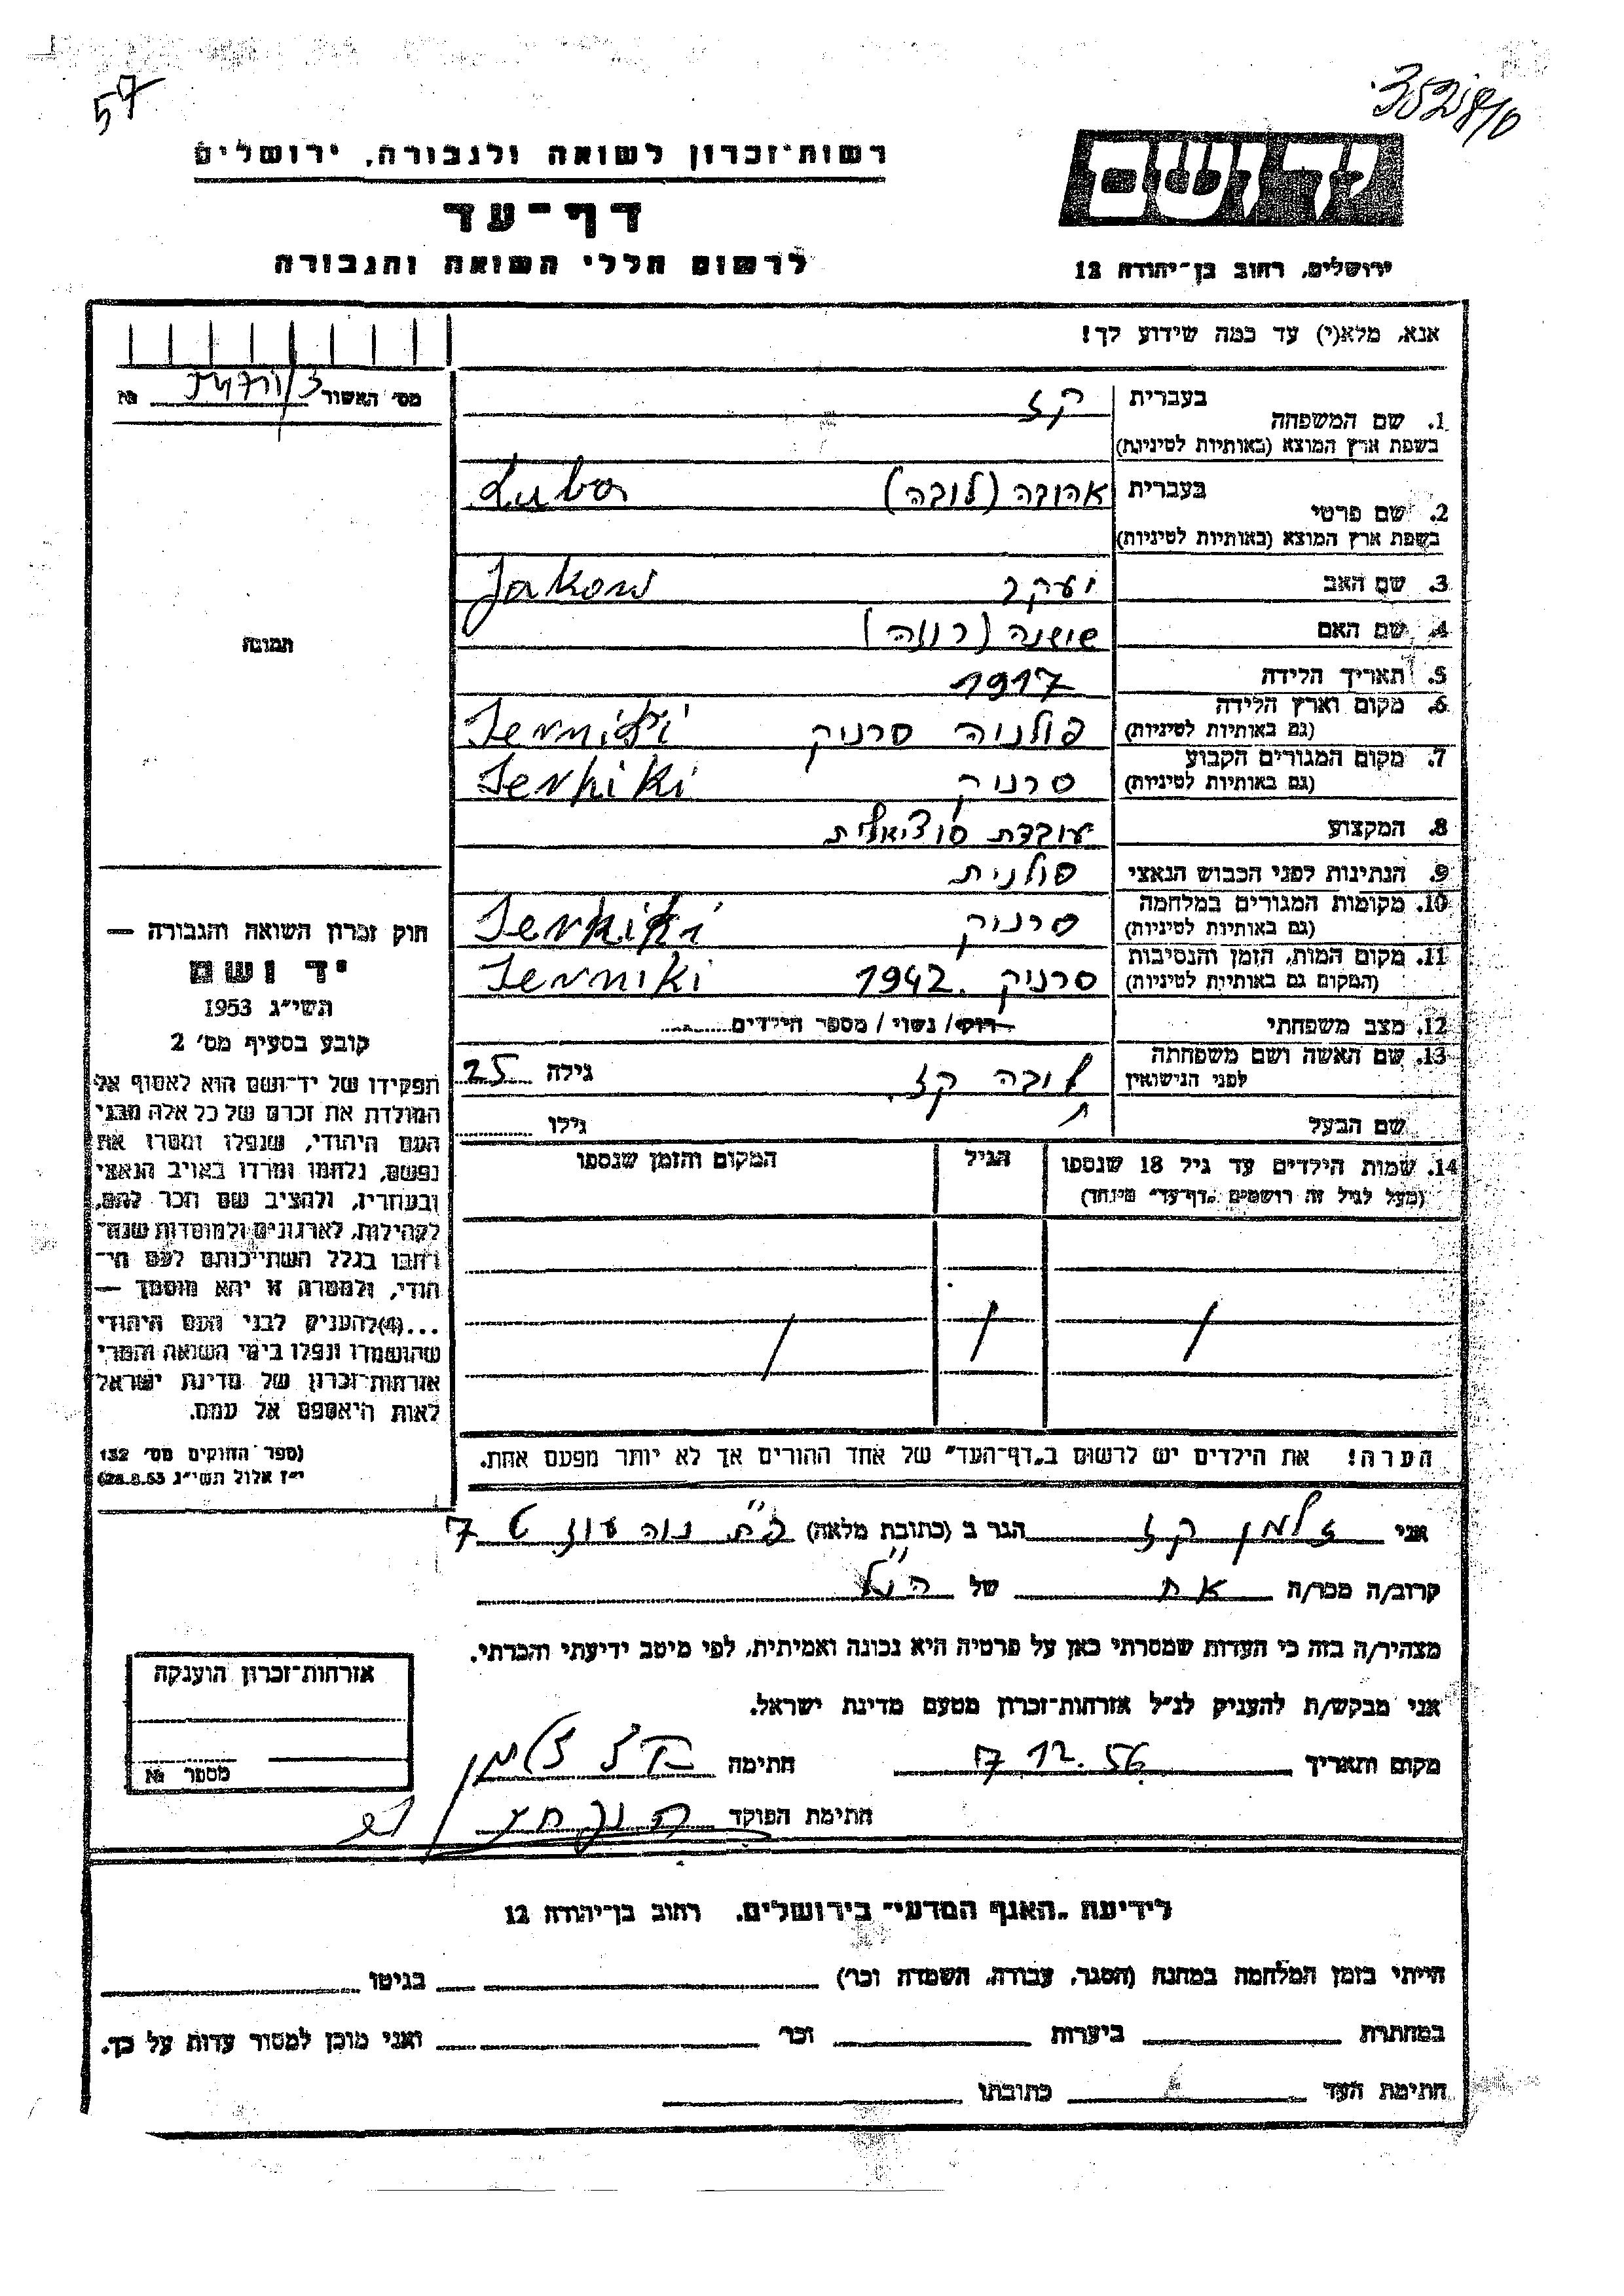 57
352810
רשות־זכרון לשואה ולגבורה, ירושלים
יד ושם
דף־עד
לרשום חללי השואה והגבורה
ירושלים, רחוב בן־יהודה 12
אנא, מלא(י) עד כמה שידוע לך!
מס׳ האשור №
1. שם המשפחה
בעברית קז
בשפת ארץ המוצא (באותיות לטיניות)
2. שם פרטי
בעברית אהובה (לובה) Luba
בשפת ארץ המוצא (באותיות לטיניות)
3. שם האב יעקב Jakow
4. שם האם שושנה (רוזה)
תמונה
5. תאריך הלידה 1917
6. מקום וארץ הלידה פולניה סרניק Serniki
(גם באותיות לטיניות)
7. מקום המגורים הקבוע סרניק Serniki
(גם באותיות לטיניות)
8. המקצוע עובדת סוציאלית
9. הנתינות לפני הכבוש הנאצי פולנית
10. מקומות המגורים במלחמה סרניק Serniki
(גם באותיות לטיניות)
11. מקום המות, הזמן והנסיבות סרניק. 1942 Serniki
(המקום גם באותיות לטיניות)
12. מצב משפחתי רווק/ נשוי / מספר הילדים
13. שם האשה ושם משפחתה לובה קז. גילה 25
לפני הנישואין
שם הבעל גילו
14. שמות הילדים עד גיל 18 שנספו הגיל המקום והזמן שנספו
(מעל לגיל זה רושמים „דף־עד״ מיוחד)
הערה! את הילדים יש לרשום ב„דף־העד״ של אחד ההורים אך לא יותר מפעם אחת.
חוק זכרון השואה והגבורה —
יד ושם
תשי״ג 1953
קובע בסעיף מס׳ 2
תפקידו של יד־ושם הוא לאסוף אל
המולדת את זכרם של כל אלה מבני
העם היהודי, שנפלו ומסרו את
נפשם, נלחמו ומרדו באויב הנאצי
ובעוזריו, ולהציב שם וזכר להם,
לקהילות, לארגונים ולמוסדות שנח־
רבו בגלל השתייכותם לעם הי־
הודי, ולמטרה זו יהא מוסמך —
...(4)להעניק לבני העם היהודי
שהושמדו ונפלו בימי השואה והמרי
אזרחות־זכרון של מדינת ישראל
לאות היאספם אל עמם.
(ספר החוקים מס׳ 132
י״ז אלול תשי״ג 28.8.53)
אני זלמן קז הגר ב (כתובת מלאה) פ״ת נוה עוז ט 7
קרוב/ה מכר/ה אח של הנ״ל
מצהיר/ה בזה כי העדות שמסרתי כאן על פרטיה היא נכונה ואמיתית, לפי מיטב ידיעתי והכרתי.
אני מבקש/ת להעניק לנ״ל אזרחות־זכרון מטעם מדינת ישראל.
מקום ותאריך 7 12. 56 חתימה קז זלמן
חתימת הפוקד
אזרחות־זכרון הוענקה
מספר №
לידיעת „האגף המדעי״ בירושלים, רחוב בן־יהודה 12
הייתי בזמן המלחמה במחנה (הסגר, עבודה, השמדה וכו׳) בגיטו
במחתרת ביערות וכו׳ ואני מוכן למסור עדות על כך.
חתימת העד כתובתו